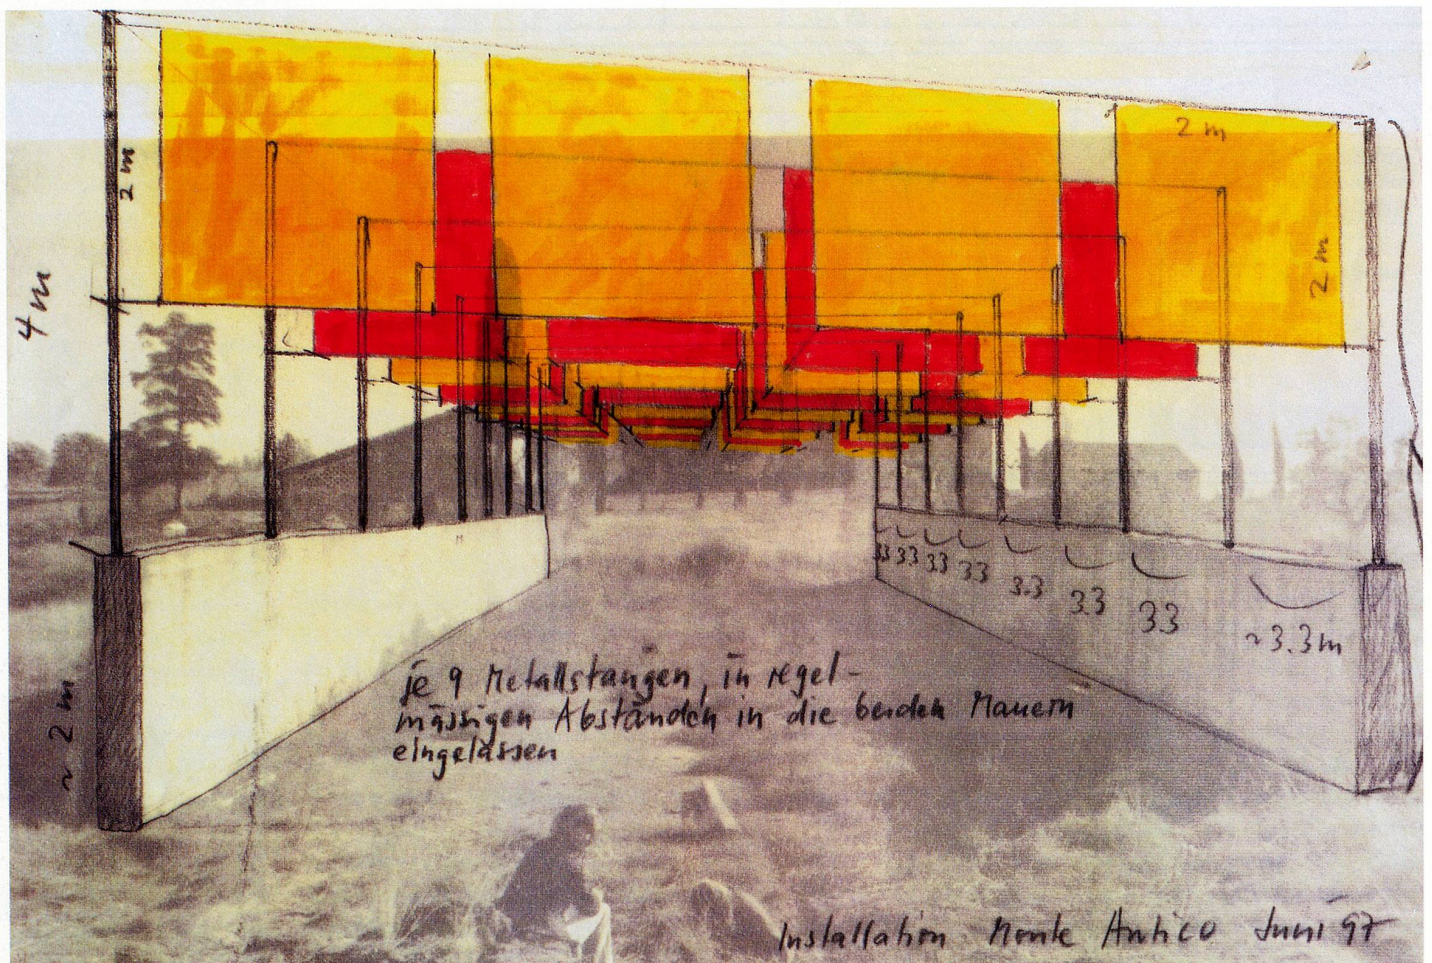 2 m
2 m
2 m
4 m
33 33 33 33 3.3 33 33 ~3.3 m
~ 2 m
je 9 Metallstangen, in regel-
mässigen Abständen in die beiden Mauern
eingelassen
Installation Monte Antico Juni 97